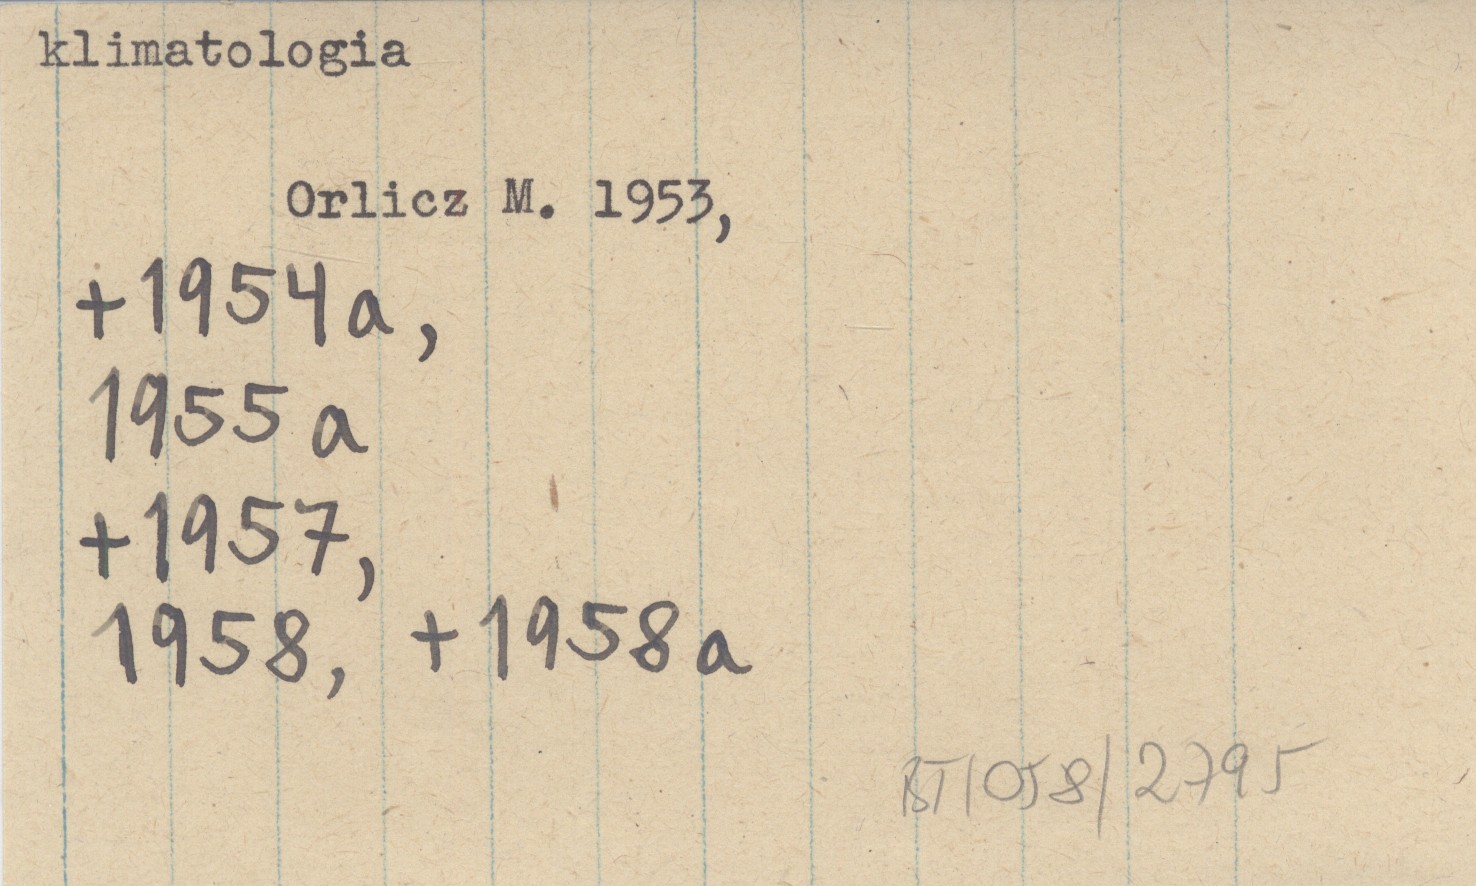 klimatologia
Orlicz M. 1953,
+1954a,
1955a
+1957,
1958, +1958a
BT/058/2795